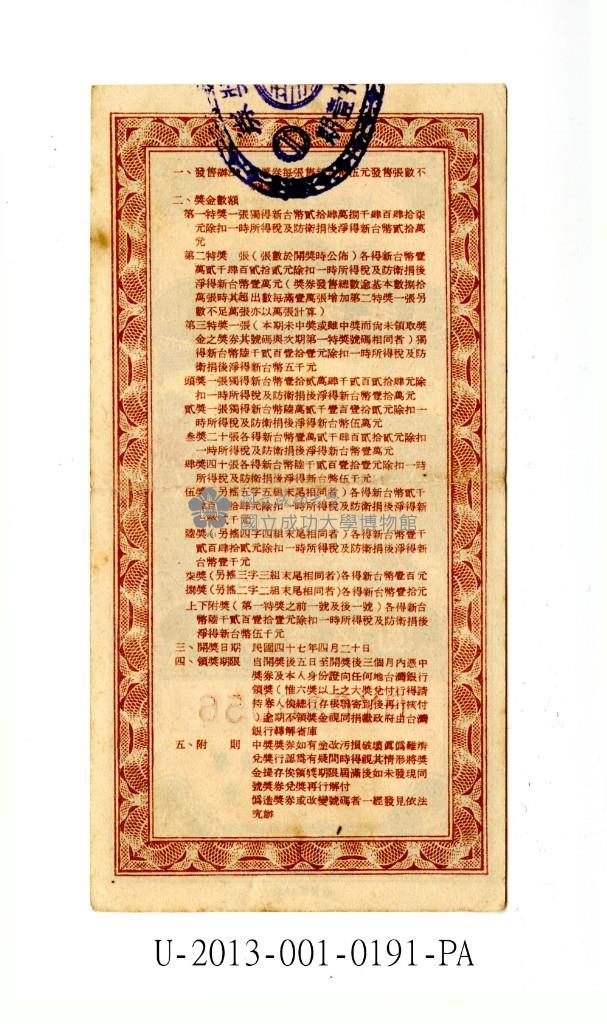 一、發售辦
券每張售
伍元發售張數不
二、獎金數額
第一特獎一張獨得新台幣貳拾肆萬捌千肆百肆拾柒
元除扣一時所得稅及防衛捐後淨得新台幣貳拾萬
元
第二特獎　張（張數於開獎時公佈）各得新台幣壹
萬貳千肆百貳拾貳元除扣一時所得稅及防衛捐後
淨得新台幣壹萬元（獎券發售總數逾基本數捌拾
萬張時其超出數每滿壹萬張增加第二特獎一張另
數不足萬張亦以萬張計算）
第三特獎一張（本期未中獎或雖中獎而尚未領取獎
金之獎券其號碼與次期第一特獎號碼相同者）獨
得新台幣陸千貳百壹拾壹元除扣一時所得稅及防
衛捐後淨得新台幣五千元
頭獎一張獨得新台幣壹拾貳萬肆千貳百貳拾肆元除
扣一時所得稅及防衛捐後淨得新台幣壹拾萬元
貳獎一張獨得新台幣陸萬貳千壹百壹拾貳元除扣一
時所得稅及防衛捐後淨得新台幣伍萬元
叁獎二十張各得新台幣壹萬貳千肆百貳拾貳元除扣
一時所得稅及防衛捐後淨得新台幣壹萬元
肆獎四十張各得新台幣陸千貳百壹拾壹元除扣一時
所得稅及防衛捐後淨得新台幣伍千元
伍獎（另搖五字五組末尾相同者）各得新台幣貳千
肆百
拾肆元除扣一時所得稅及防衛捐後淨得新
台幣貳千元
陸獎（另搖四字四組末尾相同者）各得新台幣壹千
貳百肆拾貳元除扣一時所得稅及防衛捐後淨得新
台幣壹千元
柒獎（另搖三字三組末尾相同者）各得新台幣壹百元
捌獎（另搖二字二組末尾相同者）各得新台幣壹拾元
上下附獎（第一特獎之前一號及後一號）各得新台
幣陸千貳百壹拾壹元除扣一時所得稅及防衛捐後
淨得新台幣伍千元
三、開獎日期　民國四十七年四月二十日
四、領獎期限　自開獎後五日至開獎後三個月內憑中
獎券及本人身份證向任何地台灣銀行
領獎（惟六獎以上之大獎兌付行得請
持券人俟總行存根聯寄到後再行核付
）逾期不領獎金視同捐獻政府由台灣
銀行轉解省庫
五、附　則　中獎獎券如有塗改污損破壞真偽難辨
兌獎行認為有疑問時得視其情形將獎
金提存俟領獎期限屆滿後如未發現同
號獎券兌獎再行解付
偽造獎券或改變號碼者一經發見依法
究辦
國立成功大學博物館
U-2013-001-0191-PA